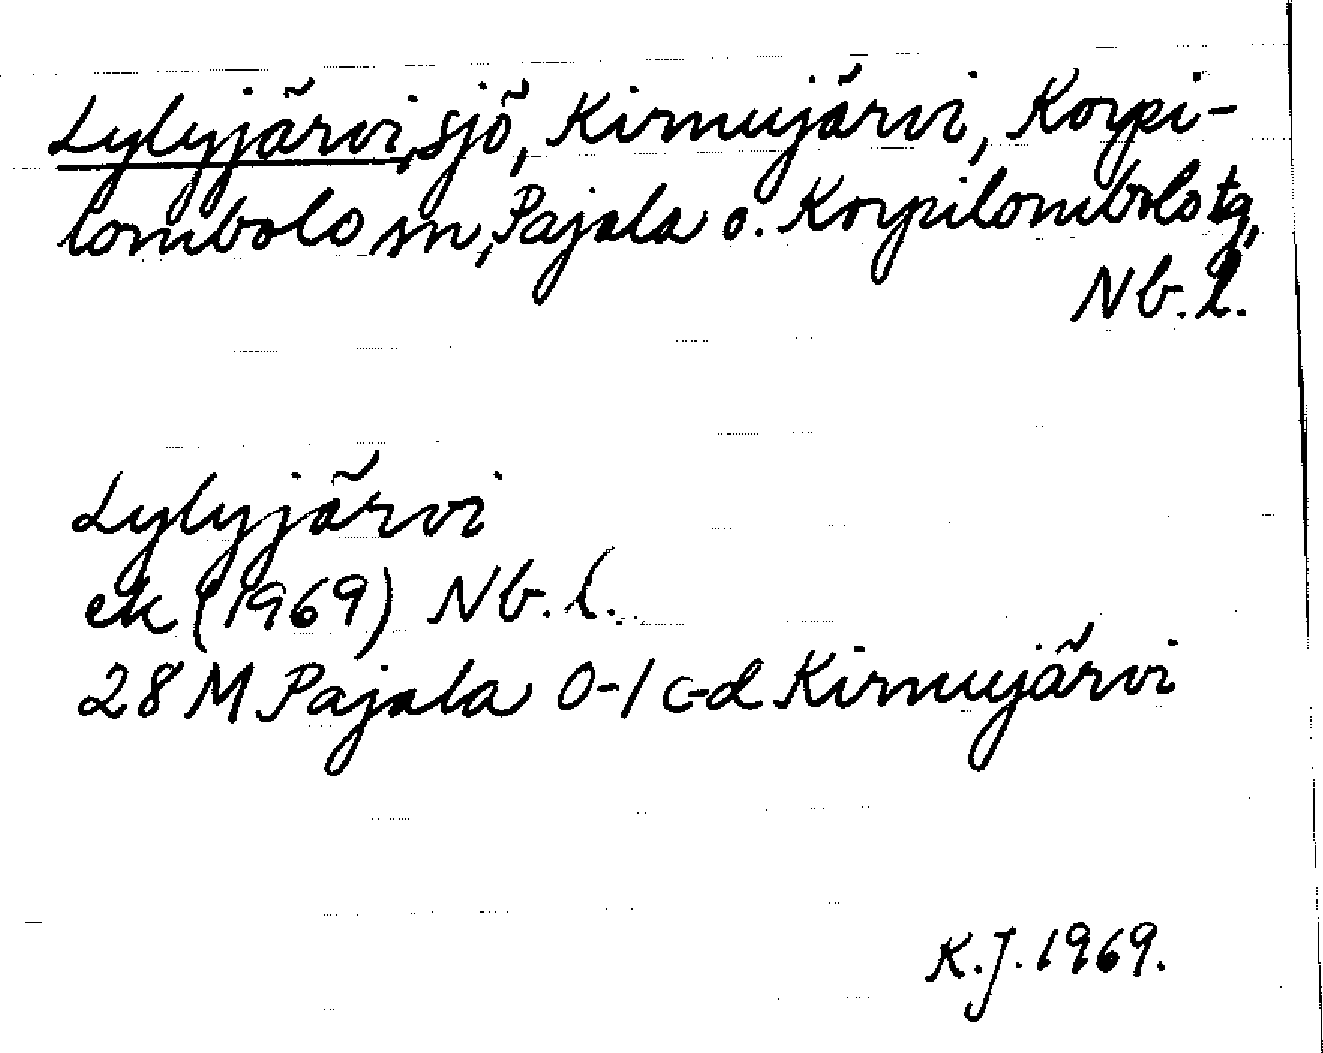 Lylyjärvi, sjö, Kirnujärvi, Korpi-
lombolo sn, Pajala o. Korpilombolo tg,
Nb. l.
Lylyjärvi
ek (1969) Nb. l.
28 M Pajala 0-1 c-d Kirnujärvi
K.J. 1969.